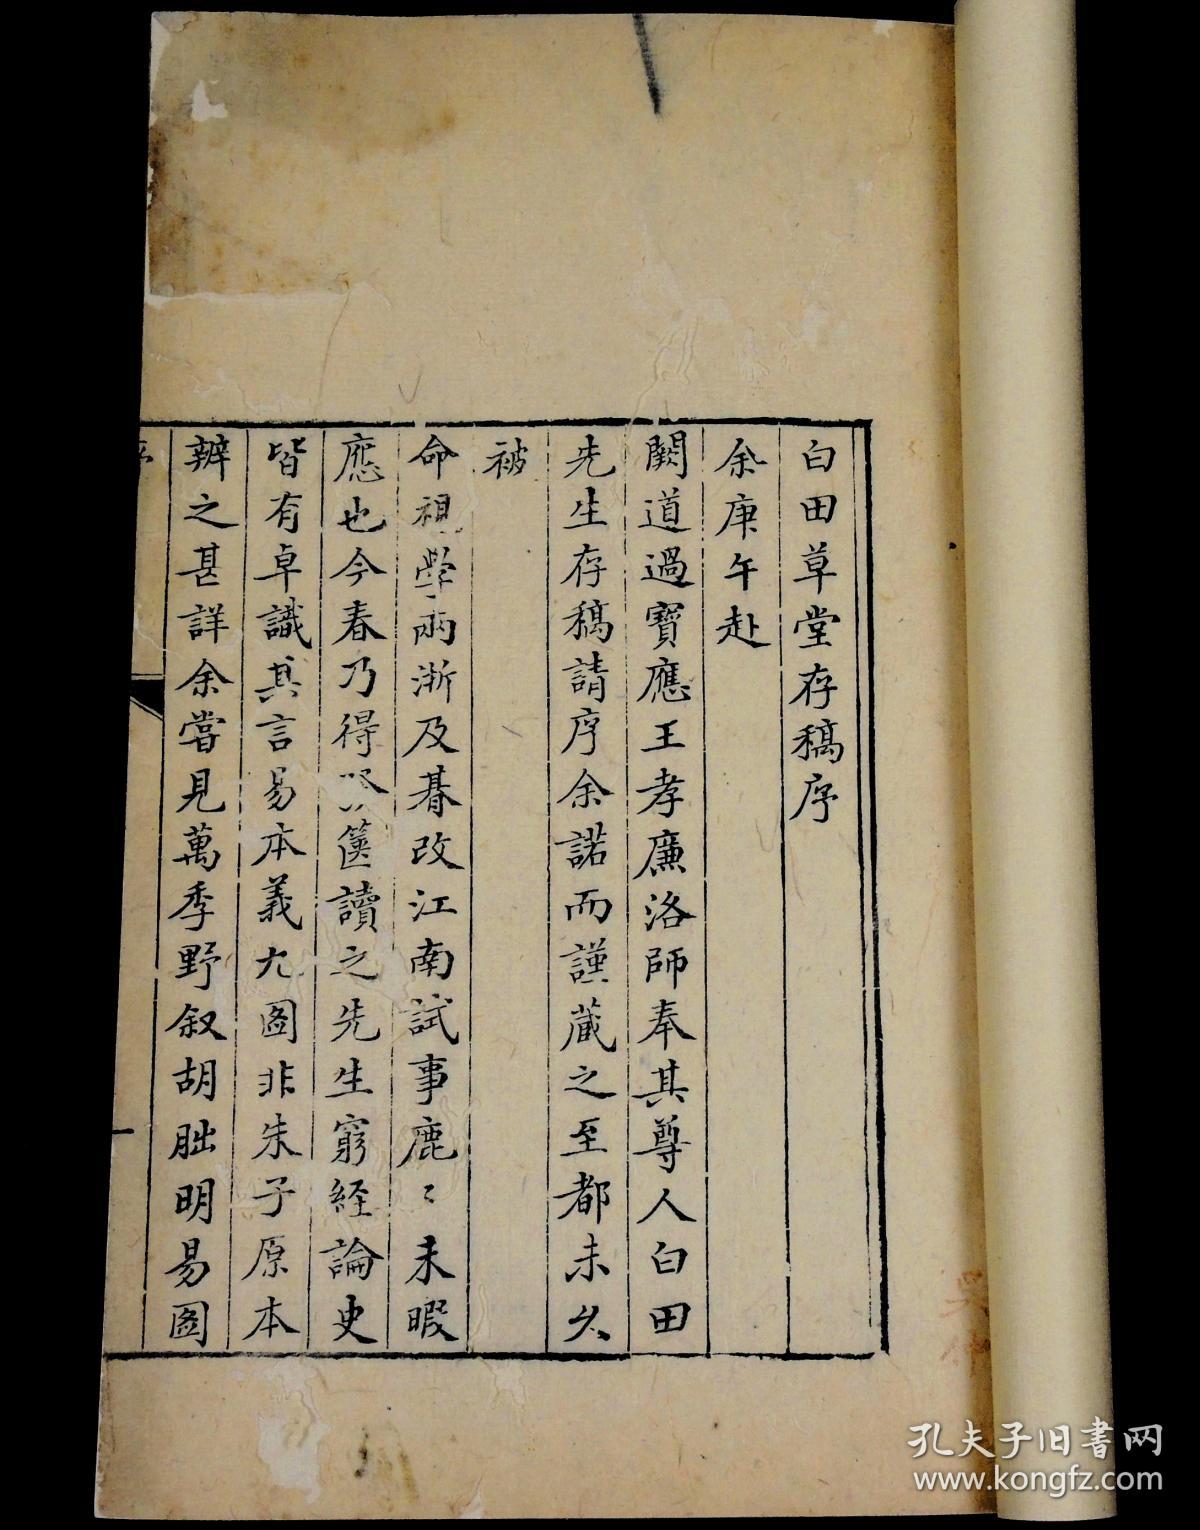 白田草堂存稿序
余庚午赴
闕道過寶應王孝廉洛師奉其尊人白田
先生存稿請序余諾而謹藏之至都未久
被
命視學兩浙及朞改江南試事鹿〻未暇
應也今春乃得發篋讀之先生窮経論史
皆有卓識其言易本義九圖非朱子原本
辨之甚詳余嘗見萬季野叙胡朏明易圖
孔夫子旧書网
www.kongfz.com